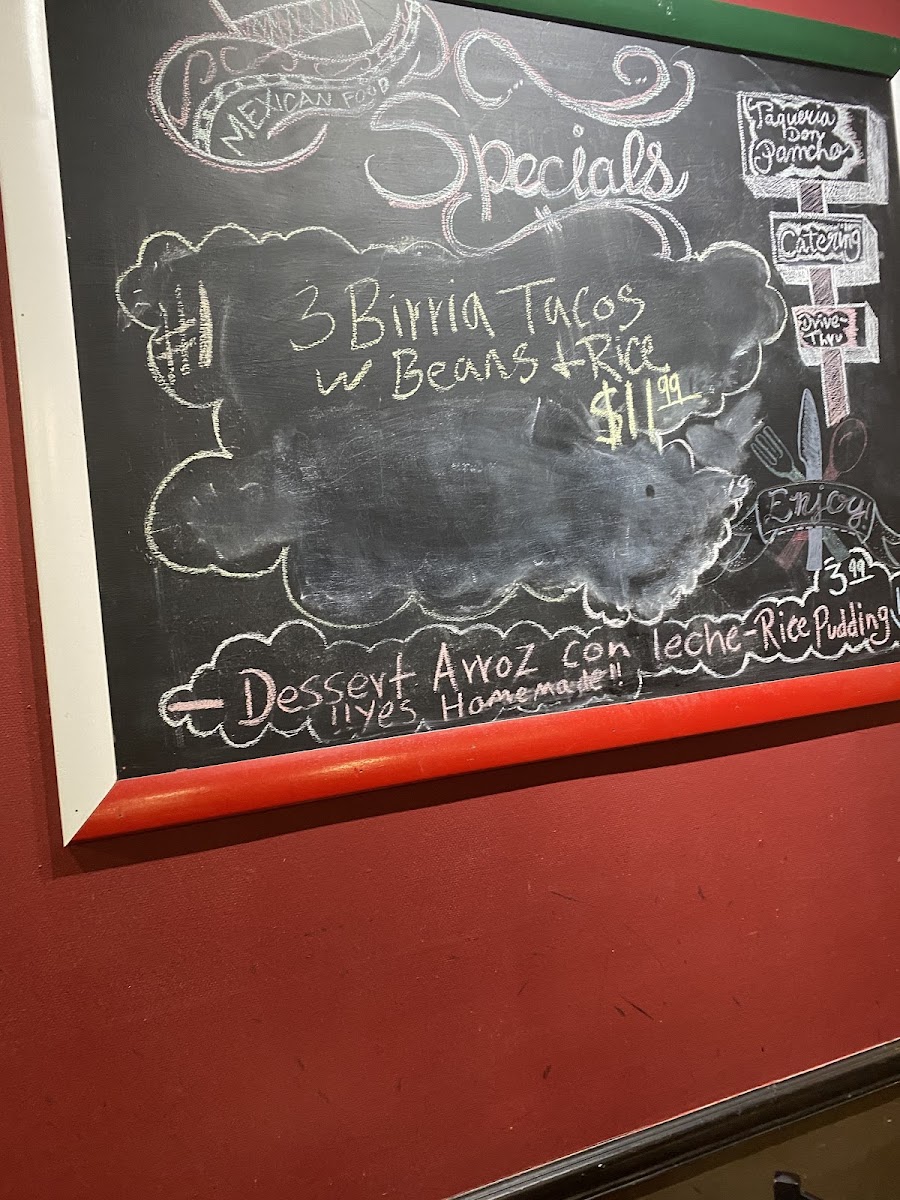 MEXICAN FOOD
Specials
Taqueria
Don
Pancho
Catering
Drive-
Thru
#1
3 Birria Tacos
w Beans + Rice
$11.99
Enjoy!
3.99
Dessert Arroz con leche-Rice Pudding
!!Yes Homemade!!